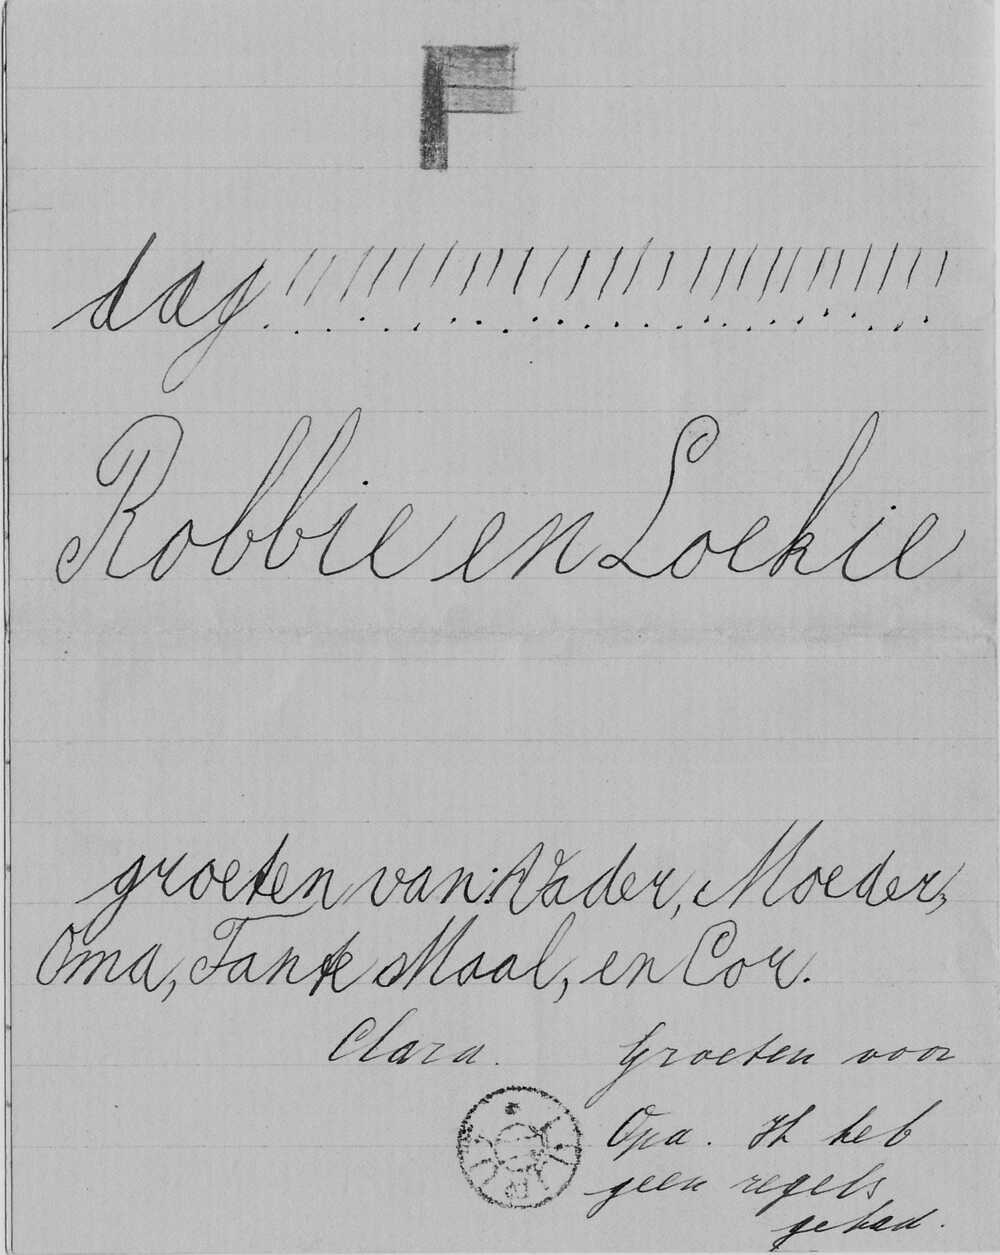 dag!!!!!!!!!!!!!!!!!!!!!!!!!!!!!!
Robbie en Loekie
groeten van: Vader, Moeder,
Oma, Tante Maal, en Cor.
Clara. Groeten voor
Opa. Ik heb
geen regels
gehad.